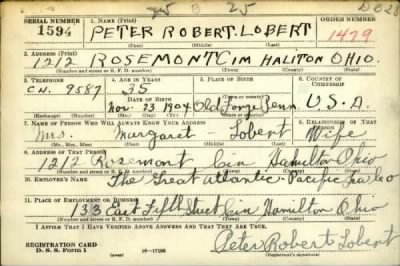 25 B 25
SERIAL NUMBER 1. NAME (Print) ORDER NUMBER
1594 PETER ROBERT LOBERT 1479
(First) (Middle) (Last)
2. ADDRESS (Print)
1212 ROSEMONT CIN HALITON OHIO.
(Number and street or R. F. D. number) (Town) (County) (State)
3. TELEPHONE 4. AGE IN YEARS 5. PLACE OF BIRTH 6. COUNTRY OF CITIZENSHIP
CH. 9587 35
DATE OF BIRTH
Nov. 23 1904 Old Forge Penn U.S.A.
(Exchange) (Number) (Mo.) (Day) (Yr.) (State or country)
7. NAME OF PERSON WHO WILL ALWAYS KNOW YOUR ADDRESS 8. RELATIONSHIP OF THAT PERSON
Mrs. Margaret - Lobert Wife
(Mr., Mrs., Miss) (First) (Middle) (Last)
9. ADDRESS OF THAT PERSON
1212 Rosemont Cin Hamilton Ohio
(Number and street or R. F. D. number) (Town) (County) (State)
10. EMPLOYER'S NAME
The Great Atlantic - Pacific Tea Co
11. PLACE OF EMPLOYMENT OR BUSINESS
133 East Fifth Street Cin Hamilton Ohio
(Number and street or R. F. D. number) (Town) (County) (State)
I AFFIRM THAT I HAVE VERIFIED ABOVE ANSWERS AND THAT THEY ARE TRUE.
REGISTRATION CARD
D. S. S. Form 1 Peter Robert Lobert
(Registrant's signature)